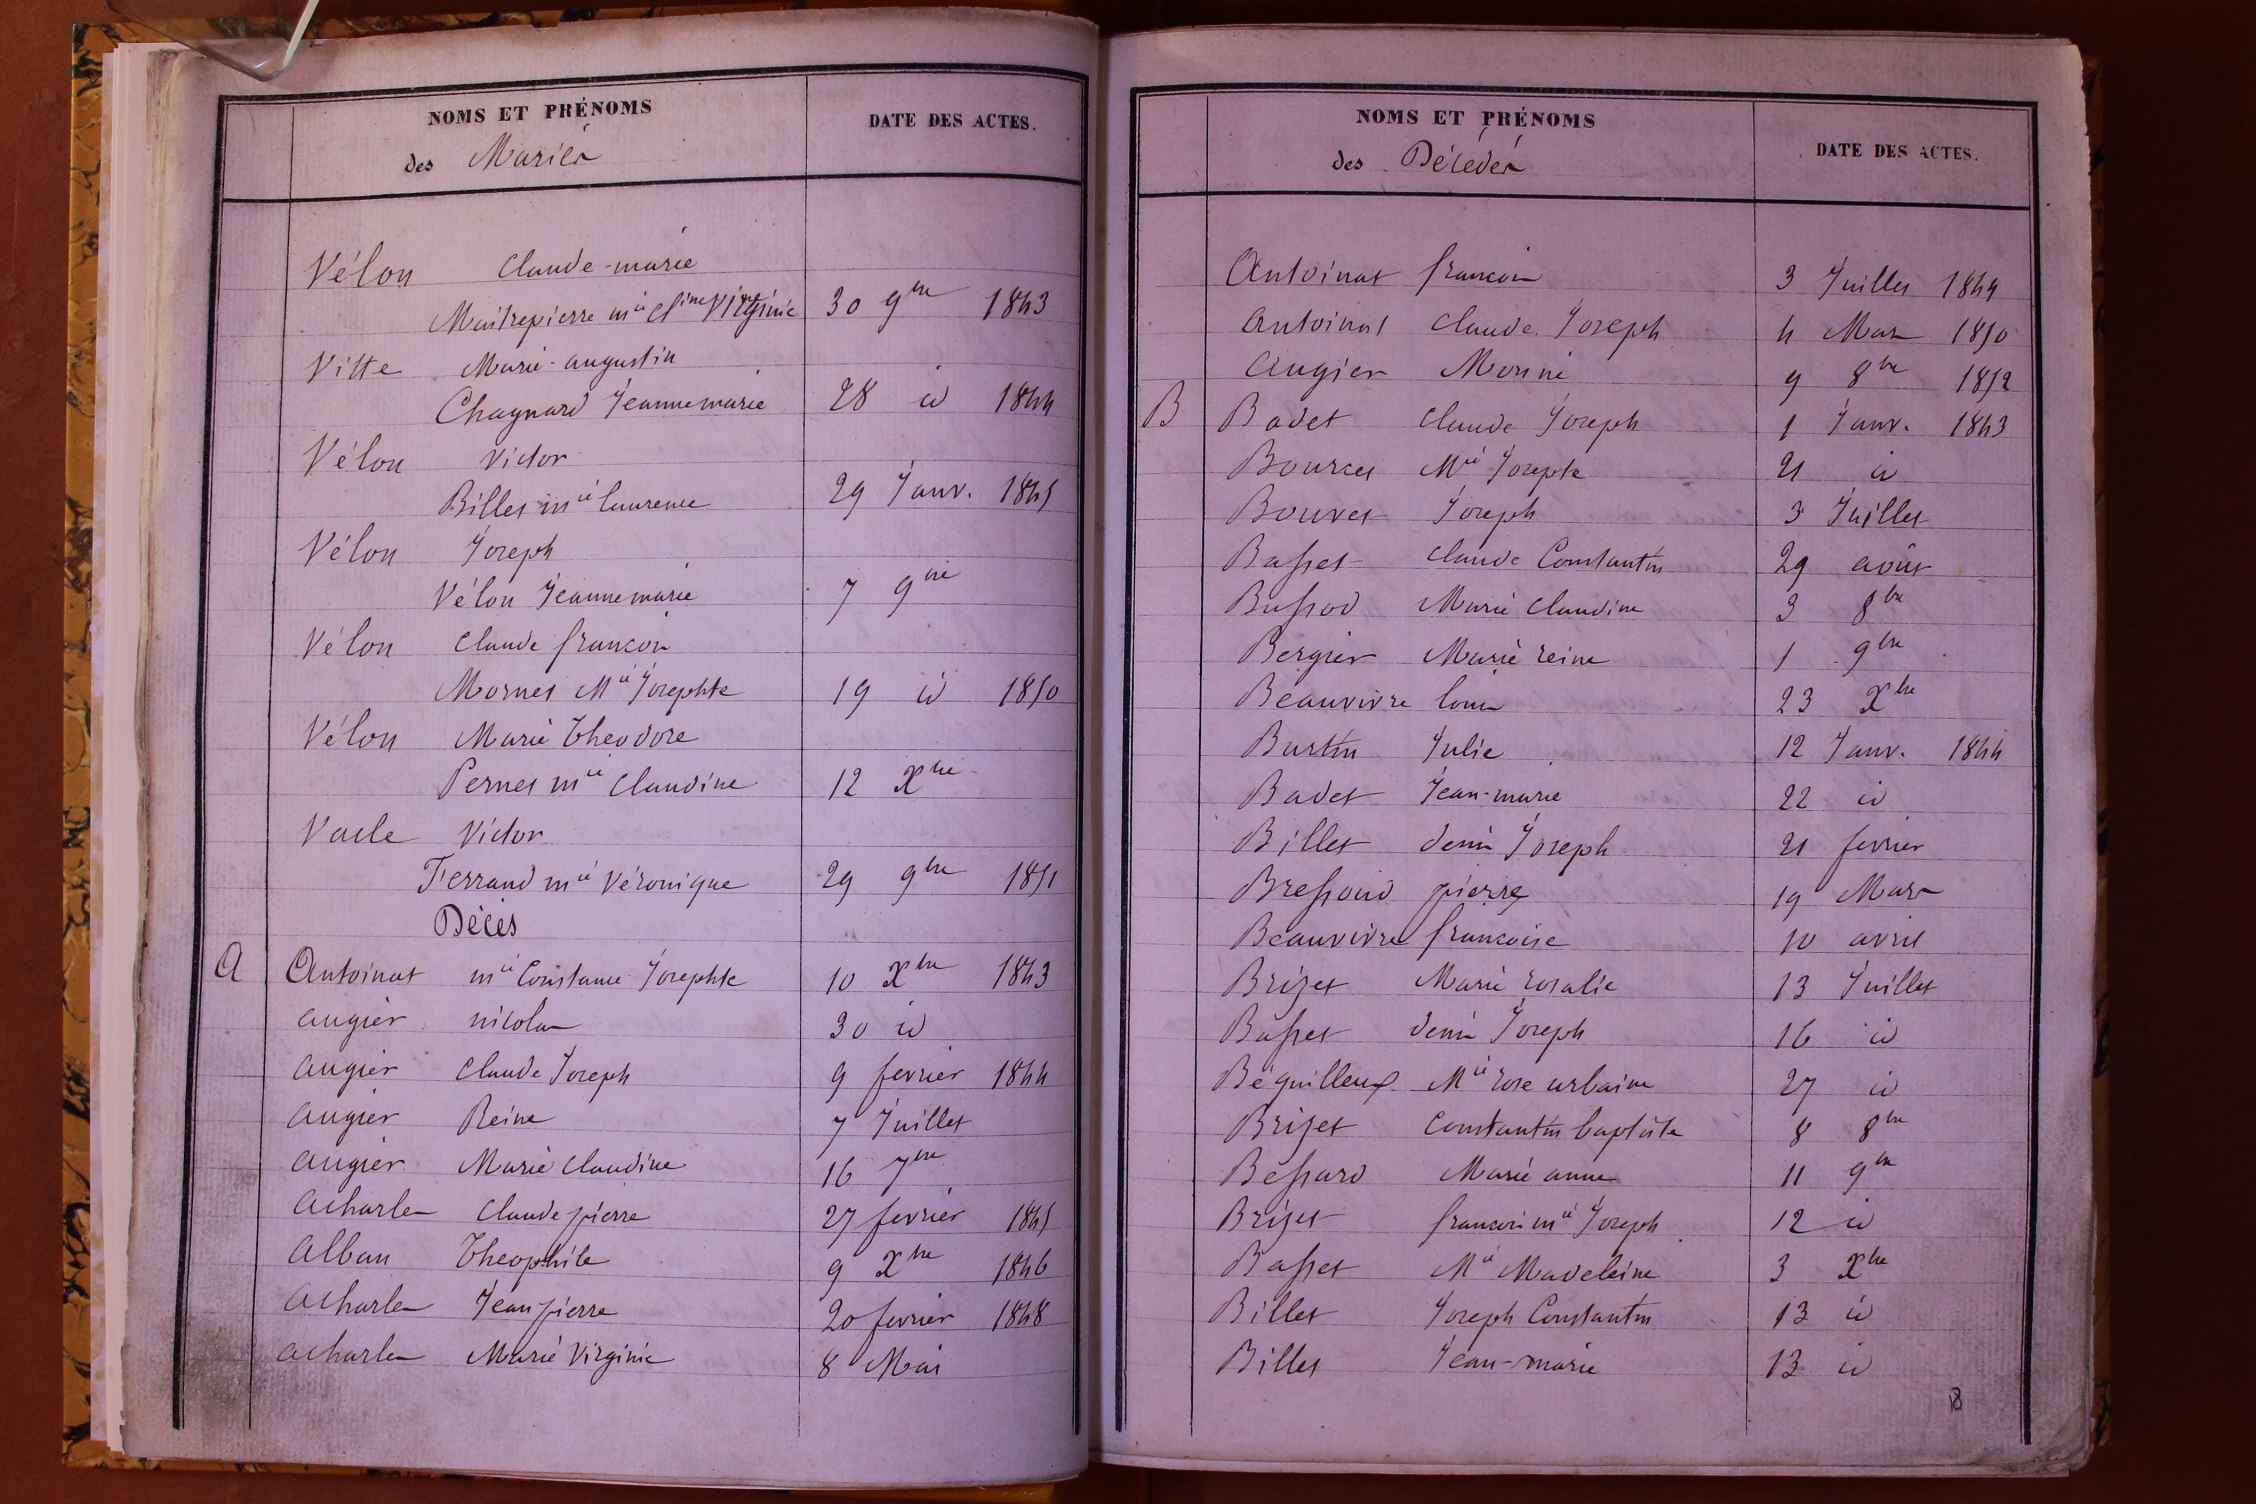 NOMS ET PRÉNOMS
DATE DES ACTES.
des Mariés
Vélon Claude-marie
Maitrepierre mie Cline Virginie 30 9bre 1843
Vitte Marie-augustin
Chagnard Jeanne marie 28 id 1844
Vélon Victor
Billet mie laurence 29 Janv. 1845
Vélon Joseph
Vélon Jeanne marie 7 9bre
Vélon Claude françois
Mornet Mie Josephte 19 id 1850
Vélon Marie Theodore
Pernet mie Claudine 12 Xbre
Vacle Victor
Ferrand mie Véronique 29 9bre 1851
Décès
A Antoinat mie Constance Josephte 10 Xbre 1843
augier nicolas 30 id
augier Claude Joseph 9 fevrier 1844
augier Reine 7 Juillet
augier Marie Claudine 16 7bre
acharles Claude pierre 27 fevrier 1845
alban Theophile 9 Xbre 1846
acharles Jean pierre 20 fevrier 1848
acharles Marie Virginie 8 Mai
NOMS ET PRÉNOMS
DATE DES ACTES.
des Décédés
Antoinat françois 3 Juillet 1849
antoinat Claude Joseph 4 Mars 1850
augier Monne 9 8bre 1852
B Badet Claude Joseph 1 Janv. 1843
Bourcet Mie Josepte 21 id
Bouvet Joseph 3 Juillet
Basset Claude Constantin 29 août
Bussod Marie Claudine 3 8bre
Bergier Marie reine 1 9bre
Beauvivre louis 23 Xbre
Burtin Julie 12 Janv. 1844
Badet Jean-marie 22 id
Billet denis Joseph 21 fevrier
Bressoud pierre 19 Mars
Beauvivre françoise 10 avril
Brizet Marie rosalie 13 Juillet
Basset denis Joseph 16 id
Béguilleux Mie rose urbaine 27 id
Brizet Constantin baptiste 8 8bre
Bessard Marie anne 11 9bre
Brizet françois mie Joseph 12 id
Basset Mie Madeleine 3 Xbre
Billet Joseph Constantin 13 id
Billet Jean-marie 13 id